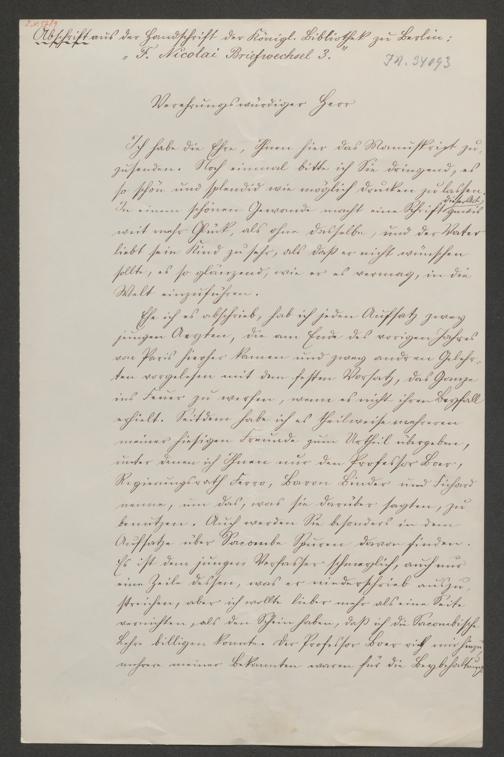 Abschrift aus der Handschrift der Königl. Bibliothek zu Berlin:
„F. Nicolai Briefwechsel 3."
J.N. 34093
Verehrungswürdiger Herr
Ich habe die Ehre, Ihnen hier das Manuskript zu-
zusenden. Noch einmal bitte ich Sie dringend, es
so schön und splendid wie möglich drucken zu lassen.
In einem schönen Gewande macht eine Schrift dieser Art gewis
weit mehr Glück, als ohne dasselbe, und der Vater
liebt sein Kind zu sehr, als daß er nicht wünschen
sollte, es so glänzend, wie er es vermag, in die
Welt einzuführen.
Ehe ich es abschrieb, hab ich jeden Aufsatz zwey
jungen Aerzten, die am Ende des vorigen Jahres
von Paris hieher kamen und zwey andren Gelehr-
ten vorgelesen mit dem festen Vorsatz, das Ganze
ins Feuer zu werfen, wenn es nicht ihren Beyfall
erhielt. Seitdem habe ich es theilweise mehreren
meiner hiesigen Freunde zum Urtheil übergeben,
unter denen ich Ihnen nur den Professor Boer,
Regierungsrath Ferro, Baron Binder und
nenne, um das, was sie darüber sagten, zu
benutzen. Auch werden Sie besonders in dem
Aufsatze über Sacombe Spuren davon finden.
Es ist dem jungen Verfasser schmerzlich, auch nur
eine Zeile dessen, was er niederschrieb auszu-
streichen, aber ich wollte lieber mehr als eine Seite
vernichten, als den Schein haben, daß ich die Sacombische
Lehre billigen konnte. Der Professor Boer rieth mir
mehrere meiner Bekannten waren für die Beybehaltung